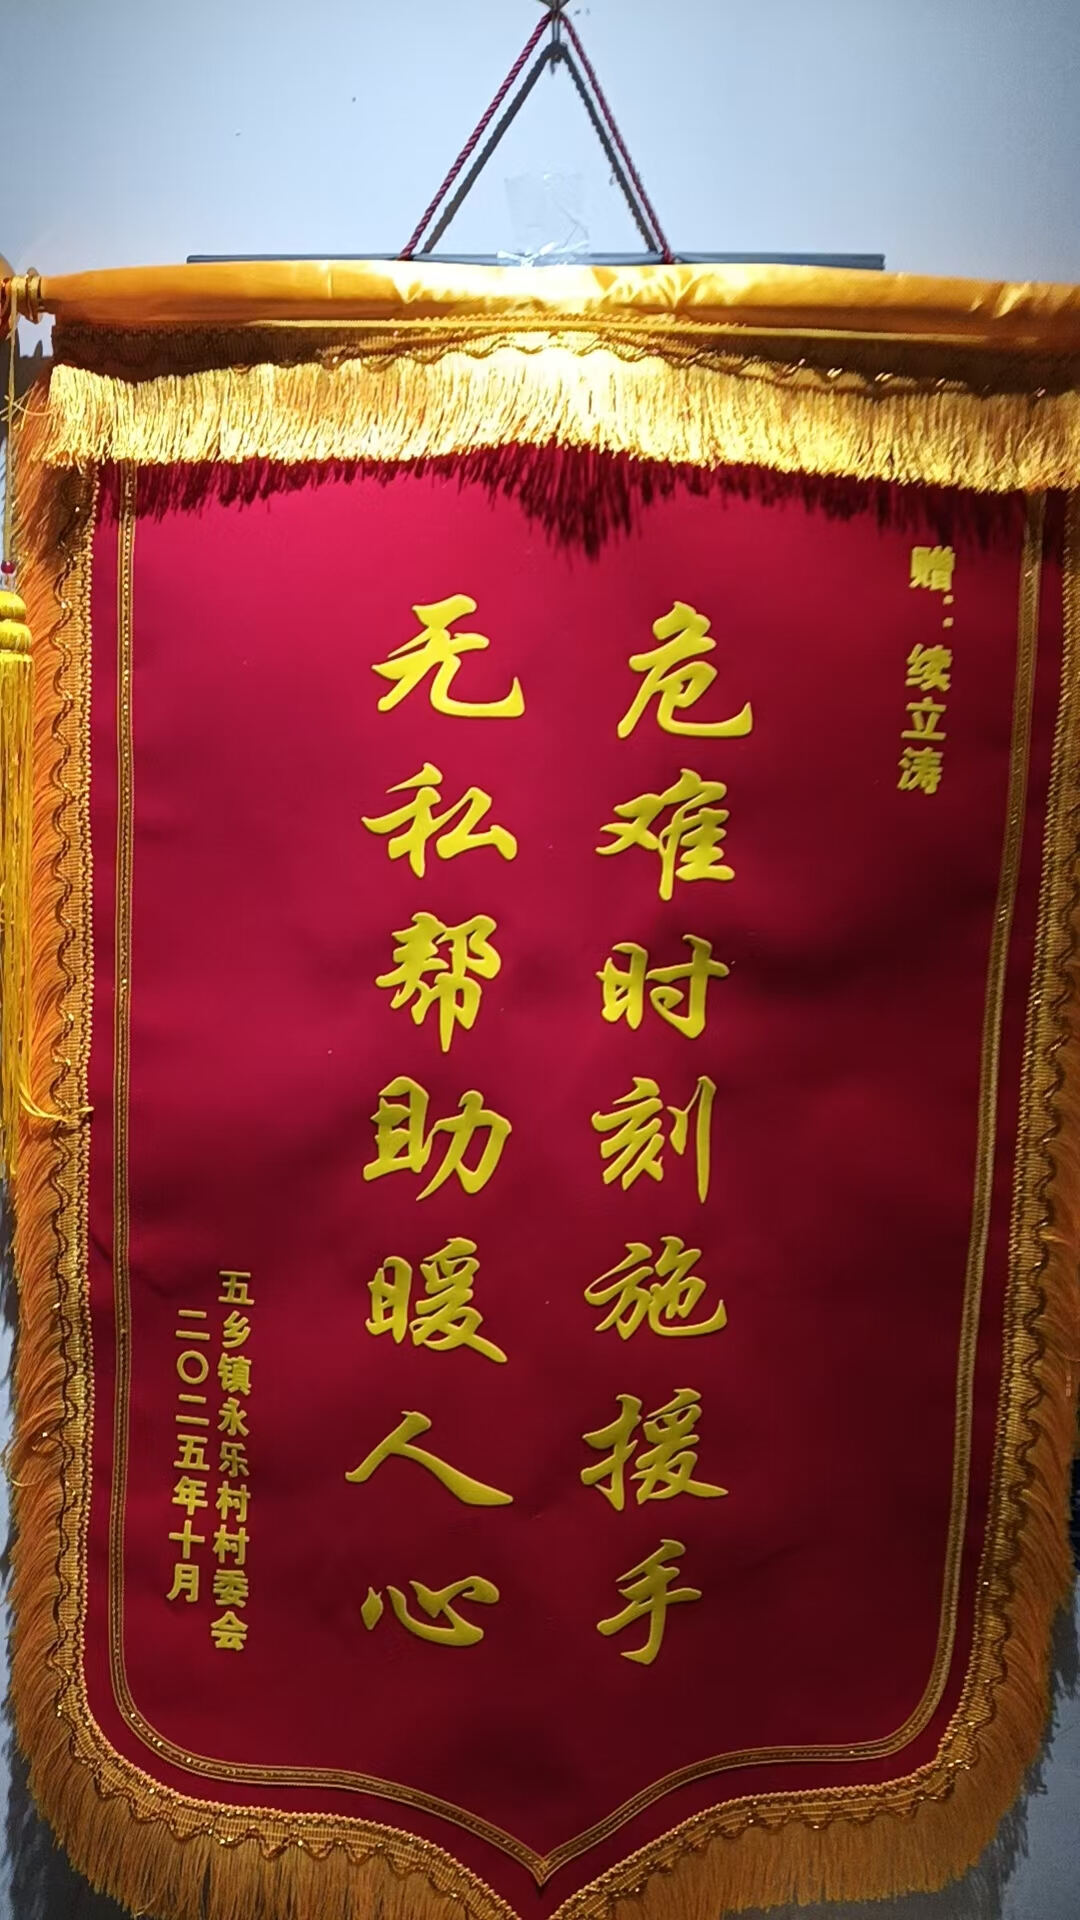 赠：续立涛
危难时刻施援手
无私帮助暖人心
五乡镇永乐村村委会
二〇二五年十月